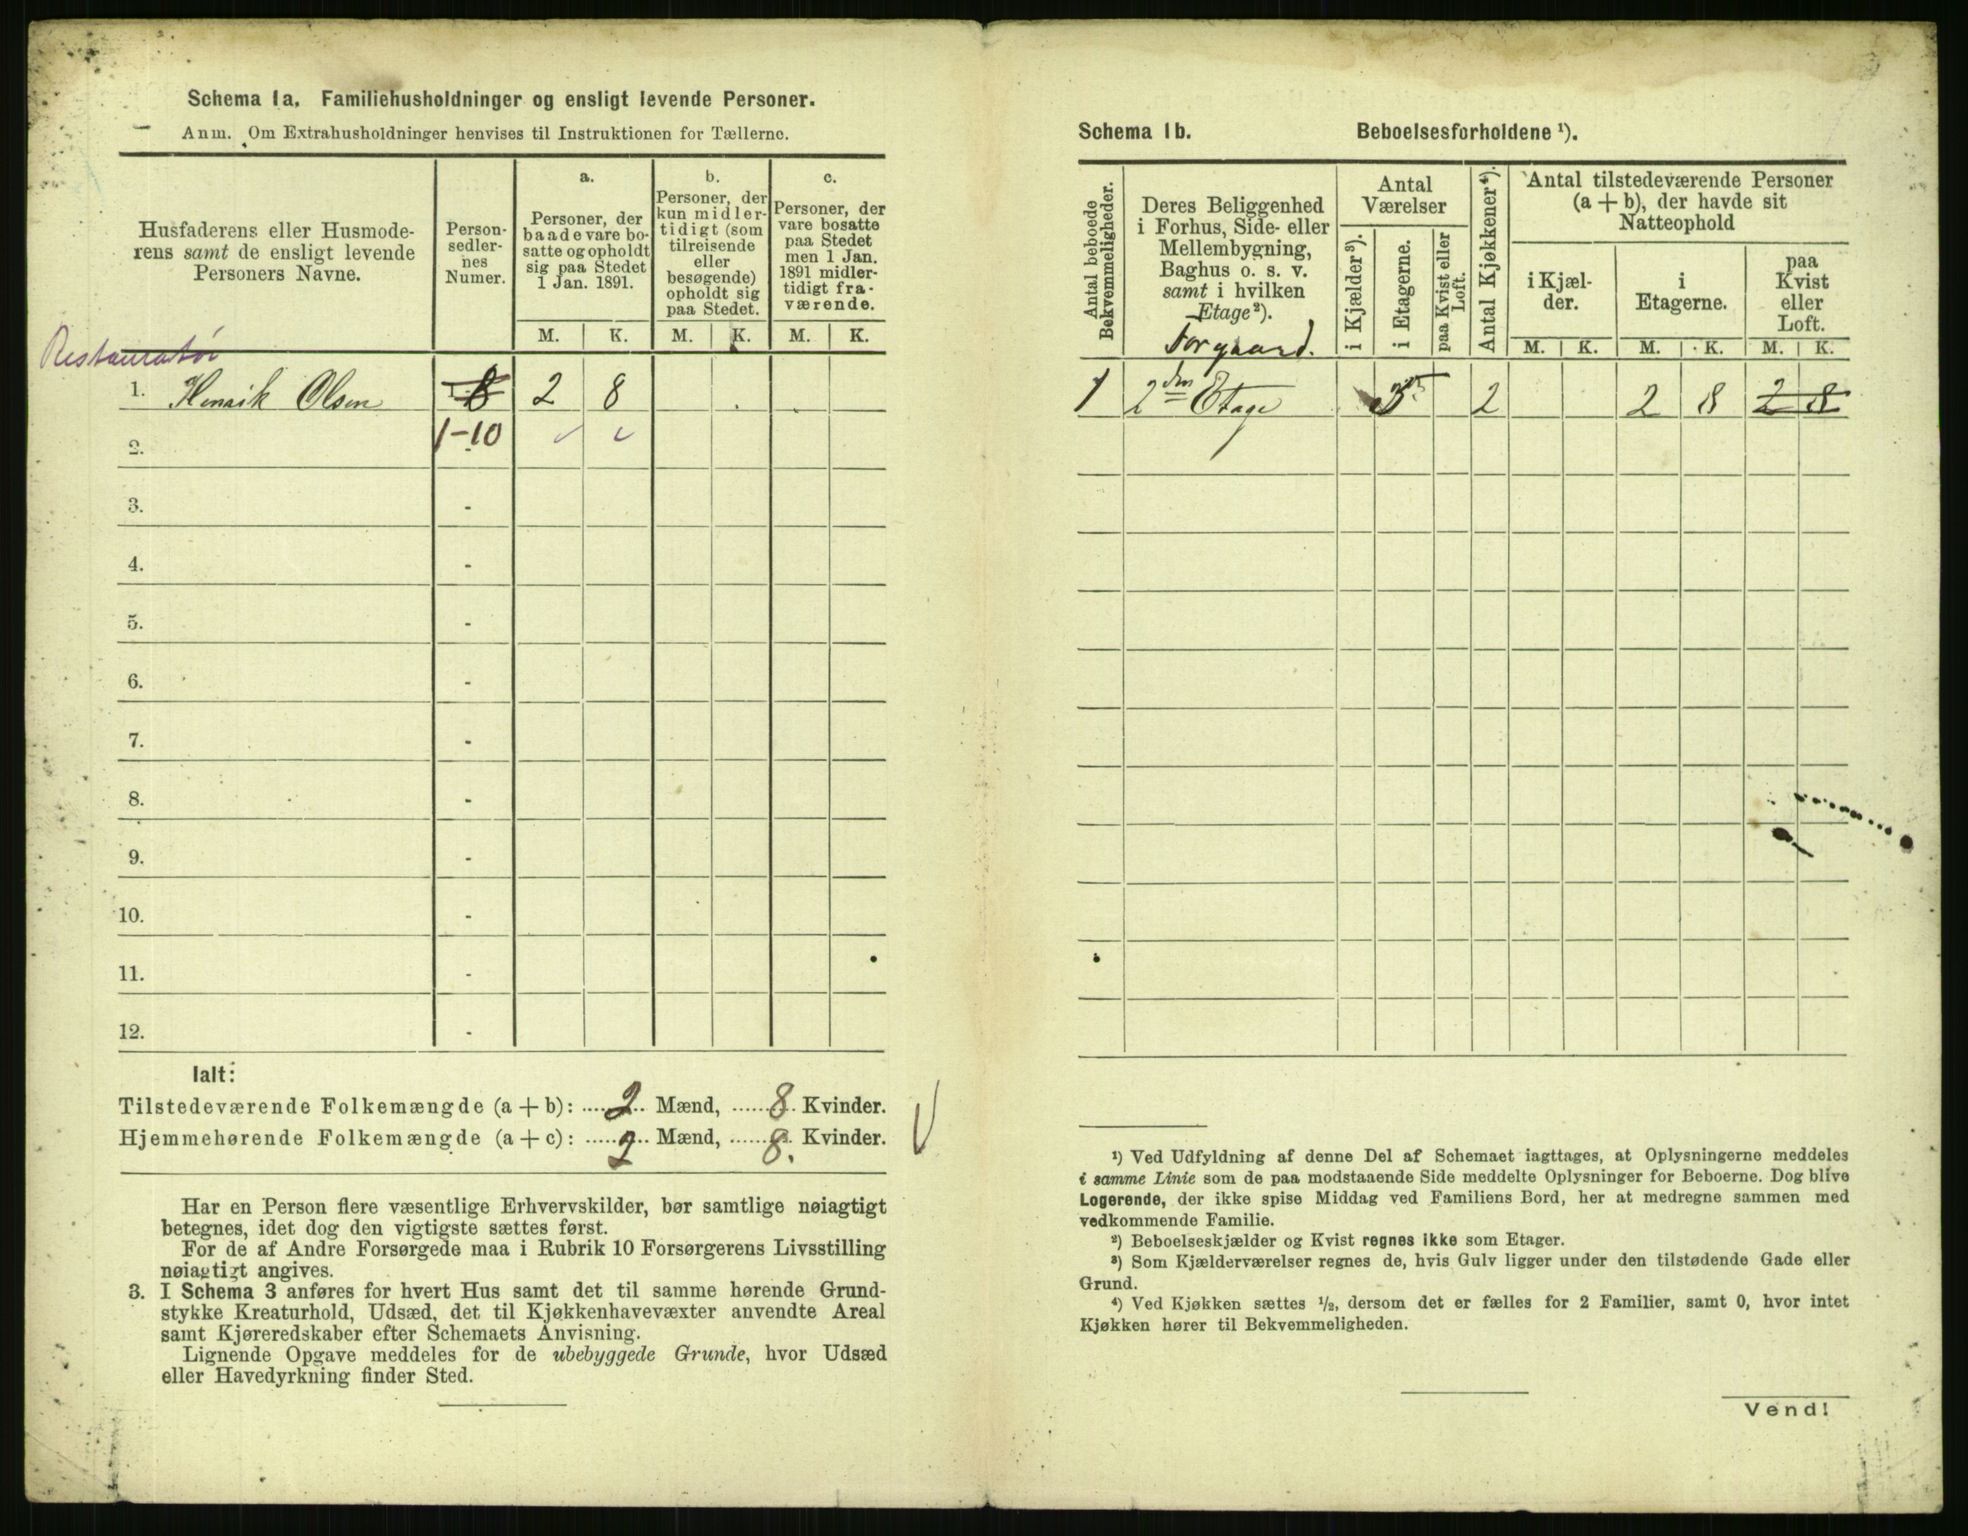 Schema 1a. Familiehusholdninger og ensligt levende Personer.
Anm. Om Extrahusholdninger henvises til Instruktionen for Tællerne.
Husfaderens eller Husmode-
rens samt de ensligt levende
Personers Navne.
Person-
sedler-
nes
Numer.
a.
Personer, der
baade vare bo-
satte og opholdt
sig paa Stedet
1 Jan. 1891.
b.
Personer, der
kun midler-
tidigt (som
tilreisende
eller
besøgende)
opholdt sig
paa Stedet.
c.
Personer, der
vare bosatte
paa Stedet
men 1 Jan.
1891 midler-
tidigt fra-
værende.
M. K. M. K. M. K.
Restauratør
1. Henrik Olsen 1-8 2 8
2. 1-10
3. -
4. -
5. -
6. -
7. -
8. -
9. -
10. -
11. -
12. -
Ialt:
Tilstedeværende Folkemængde (a + b): ..... 2 .. Mænd, ...... 8 . Kvinder.
Hjemmehørende Folkemængde (a + c): ..... 2 .. Mænd, ...... 8. Kvinder.
Har en Person flere væsentlige Erhvervskilder, bør samtlige nøiagtigt
betegnes, idet dog den vigtigste sættes først.
For de af Andre Forsørgede maa i Rubrik 10 Forsørgerens Livsstilling
nøiagtigt angives.
3. I Schema 3 anføres for hvert Hus samt det til samme hørende Grund-
stykke Kreaturhold, Udsæd, det til Kjøkkenhavevæxter anvendte Areal
samt Kjøreredskaber efter Schemaets Anvisning.
Lignende Opgave meddeles for de ubebyggede Grunde, hvor Udsæd
eller Havedyrkning finder Sted.
Schema 1b. Beboelsesforholdene ¹).
Antal beboede
Bekvemmeligheder.
Deres Beliggenhed
i Forhus, Side- eller
Mellembygning,
Baghus o. s. v.
samt i hvilken
Etage²).
Antal
Værelser
i Kjælder³).
i Etagerne.
paa Kvist eller
Loft.
Antal Kjøkkener⁴).
Antal tilstedeværende Personer
(a + b), der havde sit
Natteophold
i Kjæl-
der.
i
Etagerne.
paa
Kvist
eller
Loft.
M. K. M. K. M. K.
Forgaard.
1 2den Etage 5 2 2 8 2 8
¹) Ved Udfyldning af denne Del af Schemaet iagttages, at Oplysningerne meddeles
i samme Linie som de paa modstaaende Side meddelte Oplysninger for Beboerne. Dog blive
Logerende, der ikke spise Middag ved Familiens Bord, her at medregne sammen med
vedkommende Familie.
²) Beboelseskjælder og Kvist regnes ikke som Etager.
³) Som Kjælderværelser regnes de, hvis Gulv ligger under den tilstødende Gade eller
Grund.
⁴) Ved Kjøkken sættes ½, dersom det er fælles for 2 Familier, samt 0, hvor intet
Kjøkken hører til Bekvemmeligheden.
Vend!